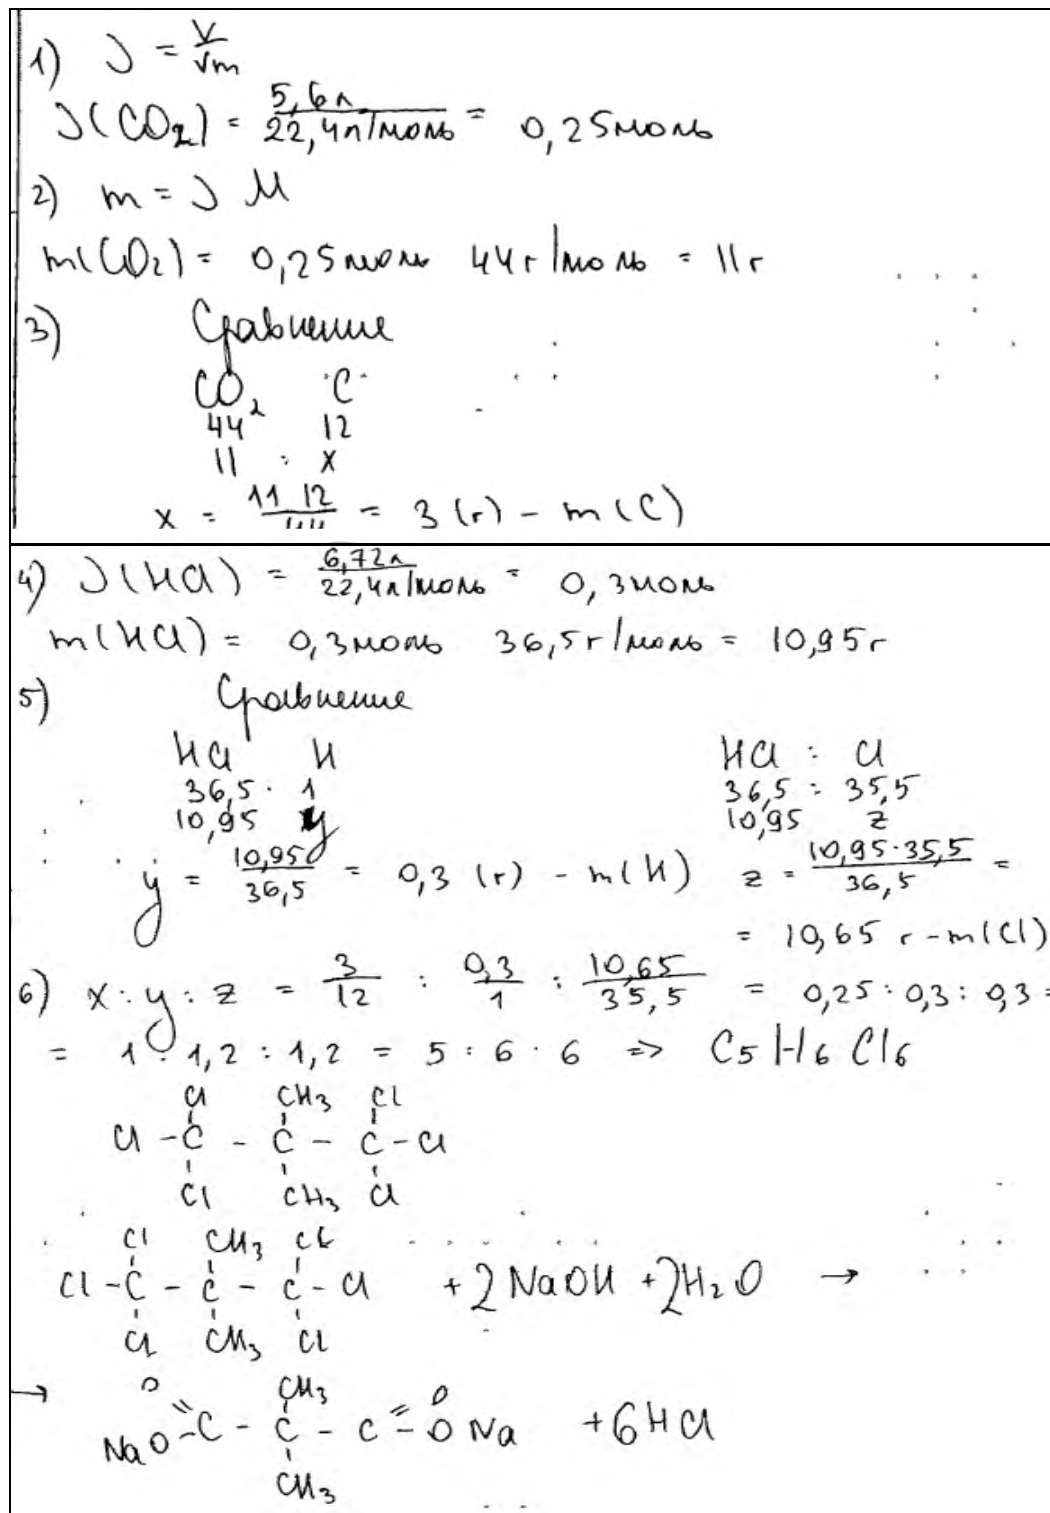 1) ν = V/Vm
ν(CO2) = 5,6л/22,4л/моль = 0,25моль
2) m = ν M
m(CO2) = 0,25моль 44г/моль = 11г
3) Сравнение
CO2 C
44 12
11 : x
x = 11 12/44 = 3 (г) - m(C)
4) ν(HCl) = 6,72л/22,4л/моль = 0,3моль
m(HCl) = 0,3моль 36,5г/моль = 10,95г
5) Сравнение
HCl H HCl : Cl
36,5 · 1 36,5 : 35,5
10,95 y 10,95 z
y = 10,95/36,5 = 0,3 (г) - m(H) z = 10,95·35,5/36,5 =
= 10,65 г - m(Cl)
6) x : y : z = 3/12 : 0,3/1 : 10,65/35,5 = 0,25 : 0,3 : 0,3 =
= 1 : 1,2 : 1,2 = 5 : 6 · 6 => C5H6Cl6
Cl CH3 Cl
Cl - C - C - C - Cl
Cl CH3 Cl
Cl CH3 Cl
Cl - C - C - C - Cl + 2NaOH + 2H2O →
Cl CH3 Cl
→ O CH3 O
NaO - C - C - C = O Na + 6HCl
CH3